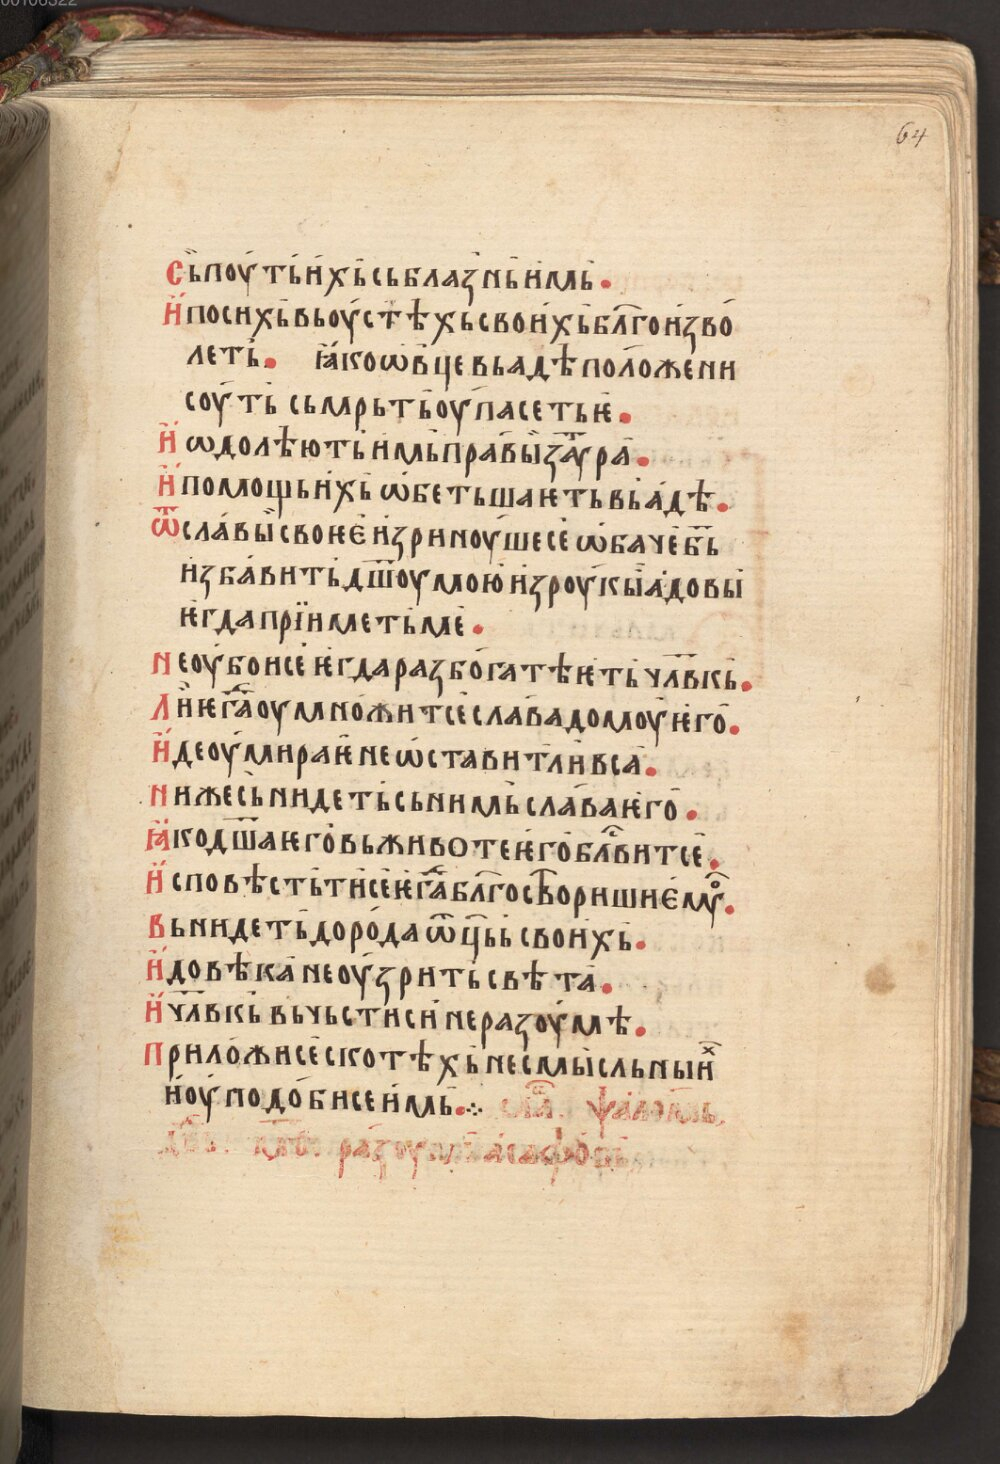 00106322
64
Сь поуть ихь сьблазнь имь.
И по сихь вь оустѣхь своихь бл҃гоизво
леть. ꙗко ѡвце вь адѣ положени
соуть сьмрьть оупасеть ѥ.
И ѡдолѣють имь правы заꙋ҃тра.
И помощь ихь ѡбетьшаѥть вь адѣ.
Ѿ славы своѥе изриноуше се ѡбаче б҃ь
избавить дш҃оу мою из роукы адовы
ѥгда прїиметь ме.
Не оубои се ѥгда разбогатѣѥть чл҃вкь.
Ли ѥгⷣа оумножит се слава домоу ѥго.
И де оумираѥ не ѡставит ли вса.
Ниже сьнидеть сь нимь слава ѥго.
Ꙗко дш҃а ѥго вь животе ѥго блⷭ҇вит се.
Исповѣсть ти се ѥгⷣа бл҃госⷮвориши ѥмꙋ.
Вьнидеть до рода ѿц҃ьь своихь.
И до вѣка не оузрить свѣта.
И чл҃вкь вь чьсти си не разоумѣ.
Приложи се скотѣхь несмысльныиⷯ
и оуподоби се имь. сла҃ ѱаломь